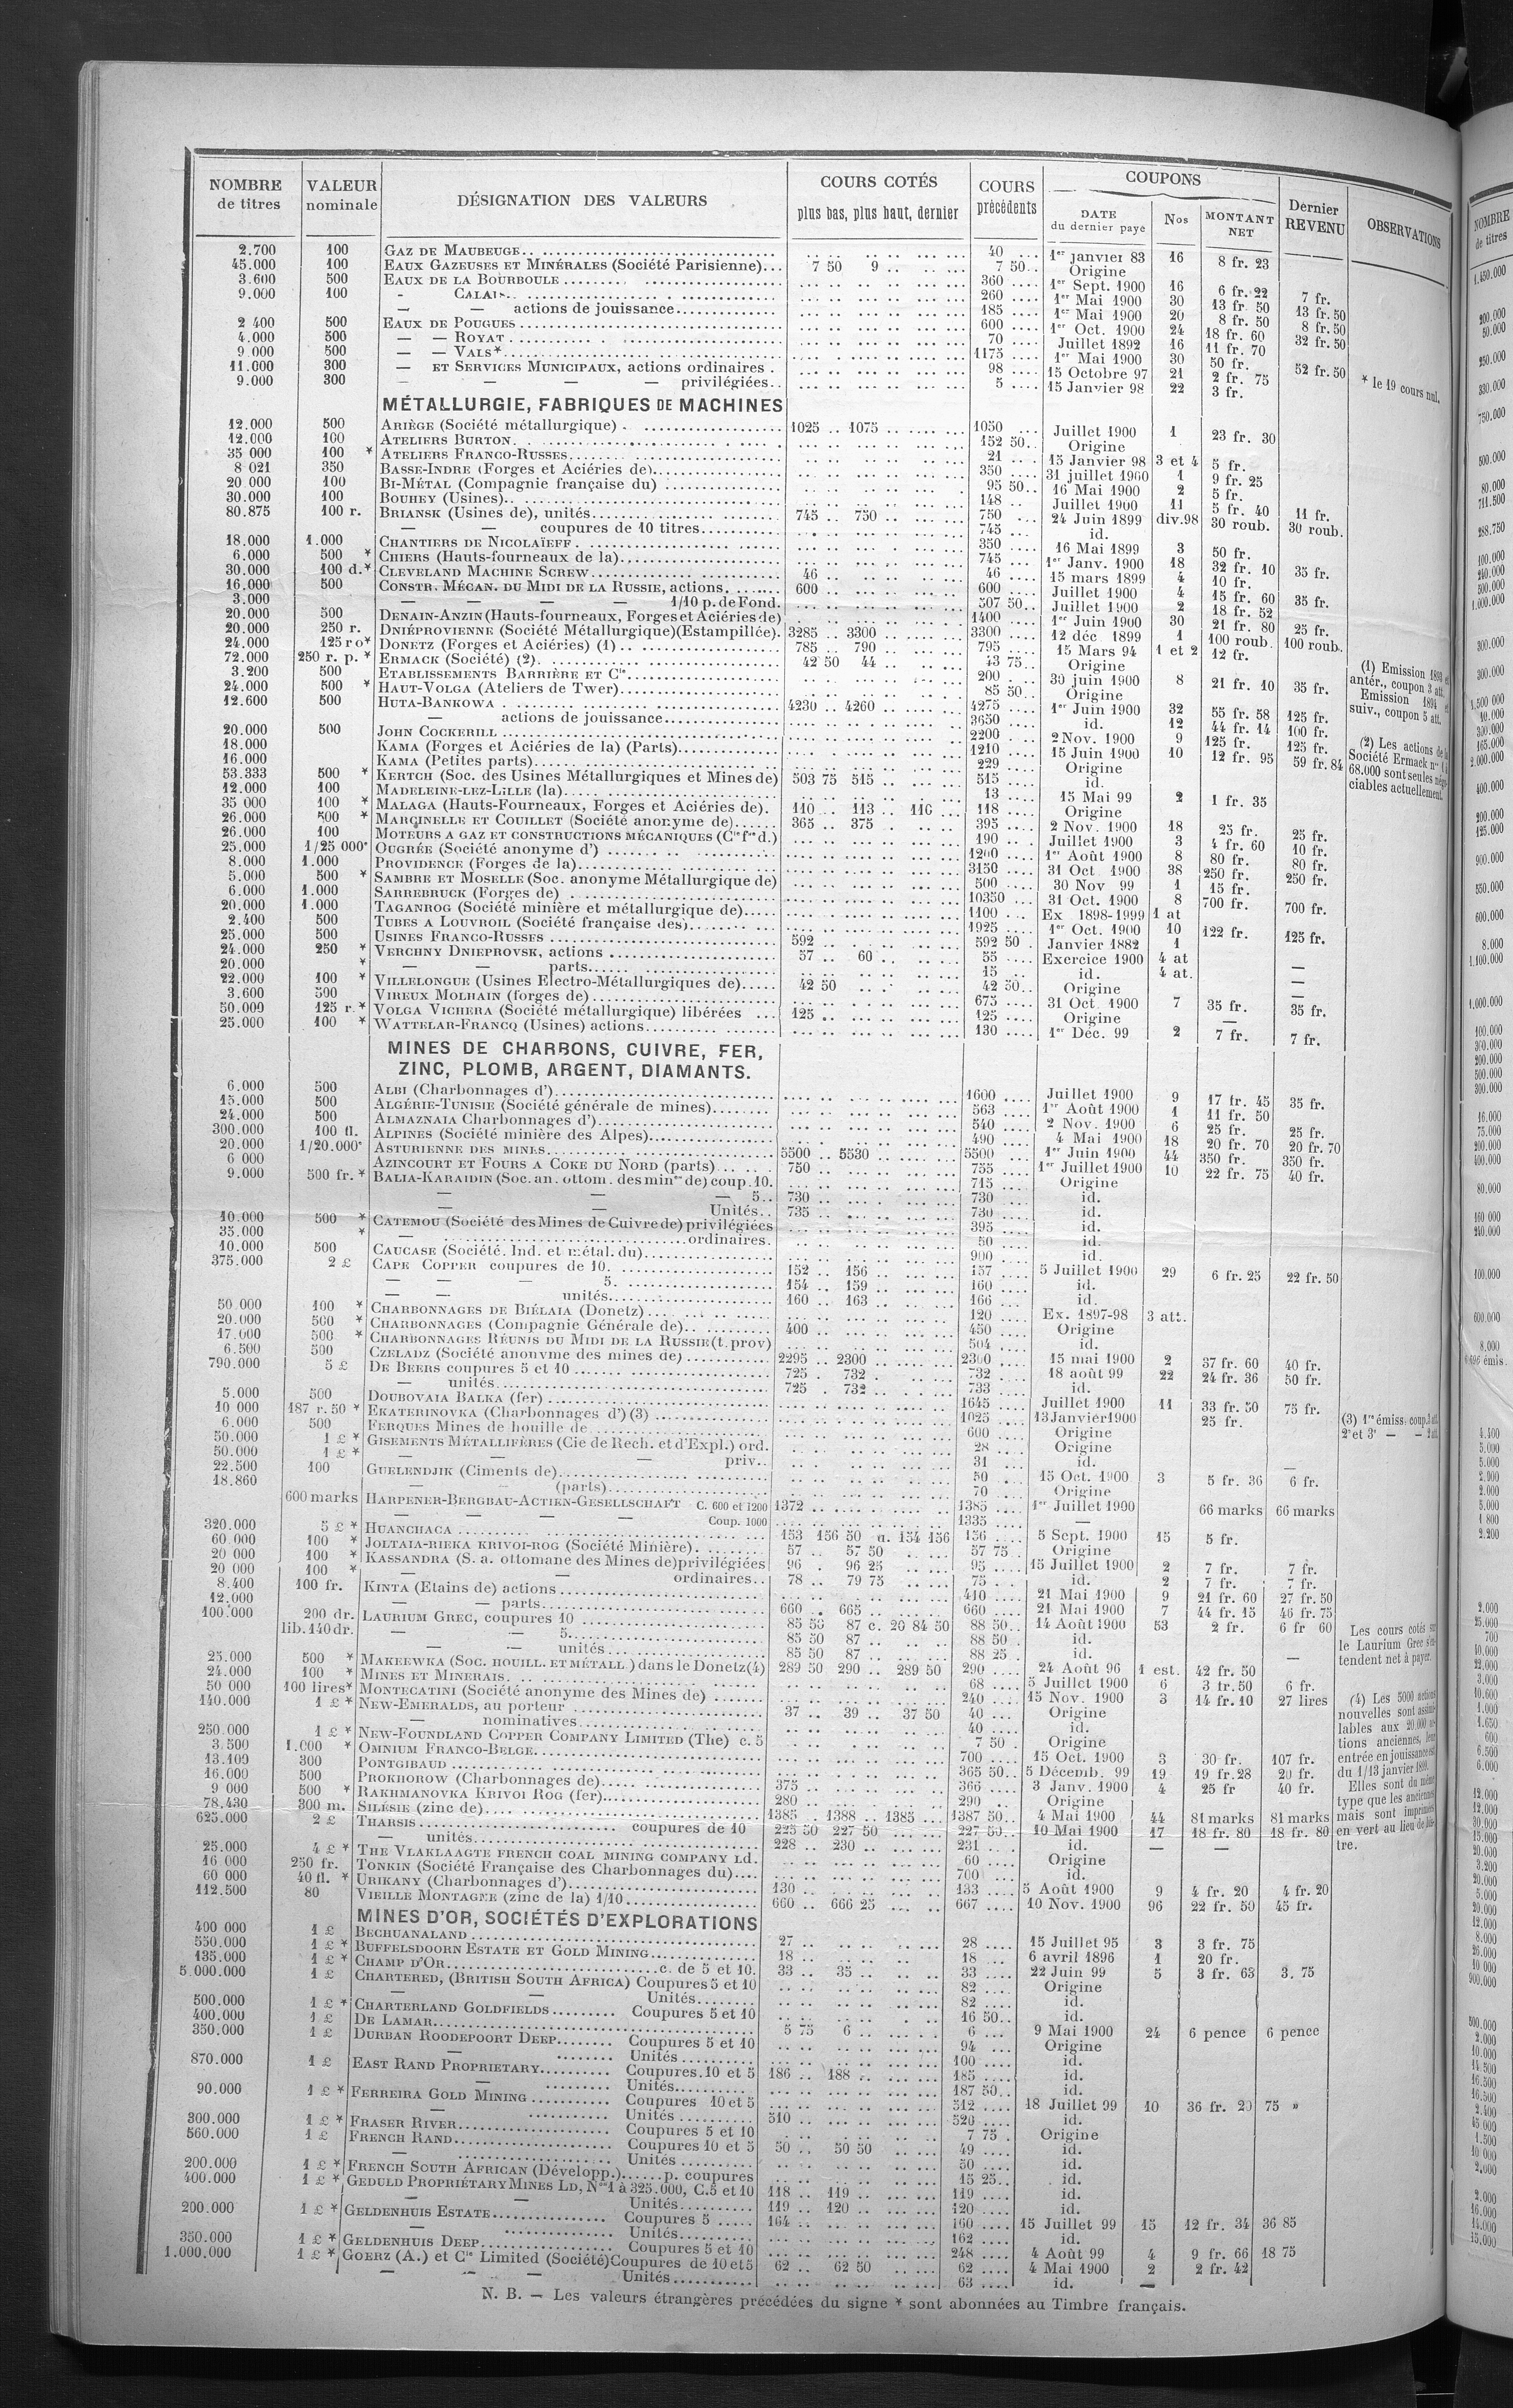 NOMBRE de titres | VALEUR nominale | DÉSIGNATION DES VALEURS | COURS COTÉS plus bas, plus haut, dernier | COURS précédents | COUPONS DATE du dernier payé | Nos | MONTANT NET | Dernier REVENU | OBSERVATIONS
2.700 100 GAZ DE MAUBEUGE 40 1er janvier 83 16 8 fr. 23
45.000 100 EAUX GAZEUSES ET MINÉRALES (Société Parisienne) 7 50 9 7 50 Origine
3.600 500 EAUX DE LA BOURBOULE 360 1er Sept. 1900 16 6 fr. 22 7 fr.
9.000 100 - CALAIS 260 1er Mai 1900 30 13 fr. 50 13 fr. 50
— — actions de jouissance 185 1er Mai 1900 20 8 fr. 50 8 fr. 50
2 400 500 EAUX DE POUGUES 600 1er Oct. 1900 24 18 fr. 60 32 fr. 50
4.000 500 — — ROYAT 70 Juillet 1892 16 11 fr. 70
9 000 500 — — VALS* 1175 1er Mai 1900 30 50 fr. 52 fr. 50 * le 19 cours nul.
11.000 300 — ET SERVICES MUNICIPAUX, actions ordinaires 98 15 Octobre 97 21 2 fr. 75
9.000 300 — — — — privilégiées 5 15 Janvier 98 22 3 fr.
MÉTALLURGIE, FABRIQUES DE MACHINES
12.000 500 ARIÈGE (Société métallurgique) 1025 1075 1050 Juillet 1900 1 23 fr. 30
12.000 100 ATELIERS BURTON 152 50 Origine
35 000 100 * ATELIERS FRANCO-RUSSES 21 15 Janvier 98 3 et 4 5 fr.
8 021 350 BASSE-INDRE (Forges et Aciéries de) 350 31 juillet 1900 1 9 fr. 25
20 000 100 BI-MÉTAL (Compagnie française du) 95 50 16 Mai 1900 2 5 fr.
30.000 100 BOUHEY (Usines) 148 Juillet 1900 11 5 fr. 40 11 fr.
80.875 100 r. BRIANSK (Usines de), unités 745 750 750 24 Juin 1899 div.98 30 roub. 30 roub.
— — coupures de 10 titres 745 id.
18.000 1.000 CHANTIERS DE NICOLAÏEFF 350 16 Mai 1899 3 50 fr.
6.000 500 * CHIERS (Hauts-fourneaux de la) 745 1er Janv. 1900 18 32 fr. 10 35 fr.
30.000 100 d.* CLEVELAND MACHINE SCREW 46 46 15 mars 1899 4 10 fr.
16.000 500 CONSTR. MÉCAN. DU MIDI DE LA RUSSIE, actions 600 600 Juillet 1900 4 15 fr. 60 35 fr.
3.000 — — — — 1/10 p. de Fond. 507 50 Juillet 1900 2 18 fr. 52
20.000 500 DENAIN-ANZIN (Hauts-fourneaux, Forges et Aciéries de) 1400 1er Juin 1900 30 21 fr. 80 25 fr.
20.000 250 r. DNIÉPROVIENNE (Société Métallurgique) (Estampillée). 3285 3300 3300 12 déc 1899 1 100 roub. 100 roub.
24.000 125 ro* DONETZ (Forges et Aciéries) (1) 785 790 795 15 Mars 94 1 et 2 12 fr.
72.000 250 r. p. * ERMACK (Société) (2) 42 50 44 43 75 Origine
3.200 500 ETABLISSEMENTS BARRIÈRE ET Cie 200 30 juin 1900 8 21 fr. 10 35 fr.
24.000 500 * HAUT-VOLGA (Ateliers de Twer) 85 50 Origine
12.600 500 HUTA-BANKOWA 4230 4260 4275 1er Juin 1900 32 55 fr. 58 125 fr.
— actions de jouissance 3650 id. 12 44 fr. 14 100 fr.
20.000 500 JOHN COCKERILL 2200 2 Nov. 1900 9 125 fr. 125 fr.
18.000 KAMA (Forges et Aciéries de la) (Parts) 1210 15 Juin 1900 10 12 fr. 95 59 fr. 84
16.000 KAMA (Petites parts) 229 Origine
53.333 500 * KERTCH (Soc. des Usines Métallurgiques et Mines de) 503 75 515 515 id.
12.000 100 MADELEINE-LEZ-LILLE (la) 13 15 Mai 99 2 1 fr. 35
35 000 100 * MALAGA (Hauts-Fourneaux, Forges et Aciéries de). 110 113 116 118 Origine
26.000 500 * MARCINELLE ET COUILLET (Société anonyme de) 365 375 395 2 Nov. 1900 18 25 fr. 25 fr.
26.000 100 MOTEURS A GAZ ET CONSTRUCTIONS MÉCANIQUES (Cie fse d.) 190 Juillet 1900 3 4 fr. 60 10 fr.
25.000 1/25 000e OUGRÉE (Société anonyme d') 1200 1er Août 1900 8 80 fr. 80 fr.
8.000 1.000 PROVIDENCE (Forges de la) 3150 31 Oct. 1900 38 250 fr. 250 fr.
5.000 500 * SAMBRE ET MOSELLE (Soc. anonyme Métallurgique de) 500 30 Nov 99 1 15 fr.
6.000 1.000 SARREBRUCK (Forges de) 10350 31 Oct. 1900 8 700 fr. 700 fr.
20.000 1.000 TAGANROG (Société minière et métallurgique de) 1100 Ex 1898-1999 1 at
2.400 500 TUBES A LOUVROIL (Société française des) 1925 1er Oct. 1900 10 122 fr. 125 fr.
25.000 500 USINES FRANCO-RUSSES 592 592 50 Janvier 1882 1
24.000 250 * VERCHNY DNIEPROVSK, actions 57 60 55 Exercice 1900 4 at
20.000 * — — parts 15 id. 4 at. —
22.000 100 * VILLELONGUE (Usines Electro-Métallurgiques de) 42 50 42 50 Origine —
3.600 500 VIREUX MOLHAIN (forges de) 675 31 Oct 1900 7 35 fr. 35 fr.
50.000 125 r. * VOLGA VICHERA (Société métallurgique) libérées 125 125 Origine —
25.000 100 * WATTELAR-FRANCQ (Usines) actions 130 1er Déc. 99 2 7 fr. 7 fr.
(1) Emission 1893 et
antér., coupon 3 att.
Emission 1894 et
suiv., coupon 5 att.
(2) Les actions de la
Société Ermack nos 1 à
68.000 sont seules négo-
ciables actuellement.
MINES DE CHARBONS, CUIVRE, FER,
ZINC, PLOMB, ARGENT, DIAMANTS.
6.000 500 ALBI (Charbonnages d') 1600 Juillet 1900 9 17 fr. 45 35 fr.
15.000 500 ALGÉRIE-TUNISIE (Société générale de mines) 563 1er Août 1900 1 11 fr. 50
24.000 500 ALMAZNAIA Charbonnages d') 540 2 Nov. 1900 6 25 fr. 25 fr.
300.000 100 fl. ALPINES (Société minière des Alpes) 490 4 Mai 1900 18 20 fr. 70 20 fr. 70
20.000 1/20.000e ASTURIENNE DES MINES 5500 5530 5500 1er Juin 1900 44 350 fr. 350 fr.
6 000 AZINCOURT ET FOURS A COKE DU NORD (parts) 750 755 1er Juillet 1900 10 22 fr. 75 40 fr.
9.000 500 fr. * BALIA-KARAIDIN (Soc. an. ottom. des mines de) coup. 10. 715 Origine
— — — 5 730 730 id.
— — Unités 735 730 id.
10.000 500 * CATEMOU (Société des Mines de Cuivre de) privilégiées 395 id.
35.000 * — ordinaires. 50 id.
10.000 500 CAUCASE (Société. Ind. et métal. du) 900 id.
375.000 2 £ CAPE COPPER coupures de 10. 152 156 157 5 Juillet 1900 29 6 fr. 25 22 fr. 50
— — — 5. 154 159 160 id.
— — unités 160 163 166 id.
50 000 100 * CHARBONNAGES DE BIÉLAIA (Donetz) 120 Ex. 1897-98 3 att.
20.000 500 * CHARBONNAGES (Compagnie Générale de) 400 450 Origine
17.000 500 * CHARBONNAGES RÉUNIS DU MIDI DE LA RUSSIE (t. prov) 504 id.
6.500 500 CZELADZ (Société anonyme des mines de) 2295 2300 2300 15 mai 1900 2 37 fr. 60 40 fr.
790.000 5 £ DE BEERS coupures 5 et 10 725 732 732 18 août 99 22 24 fr. 36 50 fr.
— unités 725 732 733 id.
5.000 500 DOUBOVAIA BALKA (fer) 1645 Juillet 1900 11 33 fr. 50 75 fr.
10 000 187 r. 50 * EKATERINOVKA (Charbonnages d') (3) 1025 13 Janvier 1900 25 fr.
6.000 500 FERQUES Mines de houille de 600 Origine
50.000 1 £ * GISEMENTS MÉTALLIFÈRES (Cie de Rech. et d'Expl.) ord. 28 Origine
50.000 1 £ * — — — priv. 31 id.
22.500 100 GUELENDJIK (Ciments de) 50 15 Oct. 1900 3 5 fr. 36 6 fr.
18.860 — — (parts) 70 Origine
600 marks HARPENER-BERGBAU-ACTIEN-GESELLSCHAFT C. 600 et 1200 1372 1385 1er Juillet 1900 66 marks 66 marks
— — — — Coup. 1000 1335 —
320.000 5 £ * HUANCHACA 153 156 50 a. 154 156 156 5 Sept. 1900 15 5 fr.
60 000 100 * JOLTAIA-RIEKA KRIVOI-ROG (Société Minière) 57 57 50 57 75 Origine
20 000 100 * KASSANDRA (S. a. ottomane des Mines de) privilégiées 96 96 25 95 15 Juillet 1900 2 7 fr. 7 fr.
20 000 100 * — — ordinaires 78 79 75 75 id. 2 7 fr. 7 fr.
8.400 100 fr. KINTA (Etains de) actions 410 21 Mai 1900 9 21 fr. 60 27 fr. 50
12.000 — — parts 660 665 660 21 Mai 1900 7 44 fr. 15 46 fr. 75
100.000 200 dr. LAURIUM GREC, coupures 10 85 50 87 c. 20 84 50 88 50 14 Août 1900 53 2 fr. 6 fr 60
lib. 140 dr. — — 5 85 50 87 88 50 id.
— — unités 85 50 87 88 25 id. —
25.000 500 * MAKEEWKA (SOC. HOUILL. ET MÉTALL.) dans le Donetz (4) 289 50 290 289 50 290 24 Août 96 1 est. 42 fr. 50
24.000 100 * MINES ET MINERAIS 68 5 Juillet 1900 6 3 fr. 50 6 fr.
50 000 100 lires* MONTECATINI (Société anonyme des Mines de) 240 15 Nov. 1900 3 14 fr. 10 27 lires
140.000 1 £ * NEW-EMERALDS, au porteur 37 39 37 50 40 Origine
— nominatives 40 id.
250.000 1 £ * NEW-FOUNDLAND COPPER COMPANY LIMITED (The) c. 5 7 50 Origine
3.500 1.000 * OMNIUM FRANCO-BELGE 700 15 Oct. 1900 3 30 fr. 107 fr.
13.109 300 PONTGIBAUD 365 50 5 Décemb. 99 19 19 fr. 28 20 fr.
16.000 500 PROKHOROW (Charbonnages de) 375 366 3 Janv. 1900 4 25 fr 40 fr.
9 000 500 * RAKHMANOVKA KRIVOI ROG (fer) 280 290 Origine
78.430 300 m. SILÉSIE (zinc de) 1385 1388 1385 1387 50 4 Mai 1900 44 81 marks 81 marks
625.000 2 £ THARSIS coupures de 10 225 50 227 50 227 50 10 Mai 1900 17 18 fr. 80 18 fr. 80
— unités 228 230 231 id. — —
25.000 4 £ * THE VLAKLAAGTE FRENCH COAL MINING COMPANY LD. 60 Origine
16 000 250 fr. TONKIN (Société Française des Charbonnages du) 700 id.
60 000 40 fl. * URIKANY (Charbonnages d') 130 133 5 Août 1900 9 4 fr. 20 4 fr. 20
112.500 80 VIEILLE MONTAGNE (zinc de la) 1/10 660 666 25 667 10 Nov. 1900 96 22 fr. 50 45 fr.
(3) 1re émiss. coup. 3 att.
2e et 3e — — 2 att.
Les cours cotés sur
le Laurium Grec s'en-
tendent net à payer.
(4) Les 5000 actions
nouvelles sont assimi-
lables aux 20.000 ac-
tions anciennes, leur
entrée en jouissance est
du 1/13 janvier 1899.
Elles sont du même
type que les anciennes
mais sont imprimées
en vert au lieu de
tre.
MINES D'OR, SOCIÉTÉS D'EXPLORATIONS
400 000 1 £ BECHUANALAND 27 28 15 Juillet 95 3 3 fr. 75
550.000 1 £ * BUFFELSDOORN ESTATE ET GOLD MINING 18 18 6 avril 1896 1 20 fr.
135.000 1 £ * CHAMP D'OR c. de 5 et 10. 33 35 33 22 Juin 99 5 3 fr. 63 3. 75
5.000.000 1 £ CHARTERED, (BRITISH SOUTH AFRICA) Coupures 5 et 10 82 Origine
— — Unités 82 id.
500.000 1 £ * CHARTERLAND GOLDFIELDS Coupures 5 et 10 16 50 id.
400.000 1 £ DE LAMAR 5 75 6 6 9 Mai 1900 24 6 pence 6 pence
350.000 1 £ DURBAN ROODEPOORT DEEP Coupures 5 et 10 94 Origine
— Unités 100 id.
870.000 1 £ EAST RAND PROPRIETARY Coupures. 10 et 5 186 188 185 id.
— Unités 187 50 id.
90.000 1 £ * FERREIRA GOLD MINING Coupures 10 et 5 512 18 Juillet 99 10 36 fr. 20 75 »
— Unités 510 520 id.
300.000 1 £ * FRASER RIVER Coupures 5 et 10 7 75 Origine
560.000 1 £ FRENCH RAND Coupures 10 et 5 50 50 50 49 id.
— Unités 50 id.
200.000 1 £ * FRENCH SOUTH AFRICAN (Développ.) p. coupures 15 25 id.
400.000 1 £ * GEDULD PROPRIÉTARY MINES LD, Nos 1 à 325.000, C. 5 et 10 118 119 119 id.
— — Unités 119 120 120 id.
200.000 1 £ * GELDENHUIS ESTATE Coupures 5 164 160 15 Juillet 99 15 12 fr. 34 36 85
— Unités 162 id.
350.000 1 £ * GELDENHUIS DEEP Coupures 5 et 10 248 4 Août 99 4 9 fr. 66 18 75
1.000.000 1 £ * GOERZ (A.) et Cie Limited (Société) Coupures de 10 et 5 62 62 50 62 4 Mai 1900 2 2 fr. 42
— — — Unités 63 id. —
N. B. — Les valeurs étrangères précédées du signe * sont abonnées au Timbre français.
NOMBRE
de titres